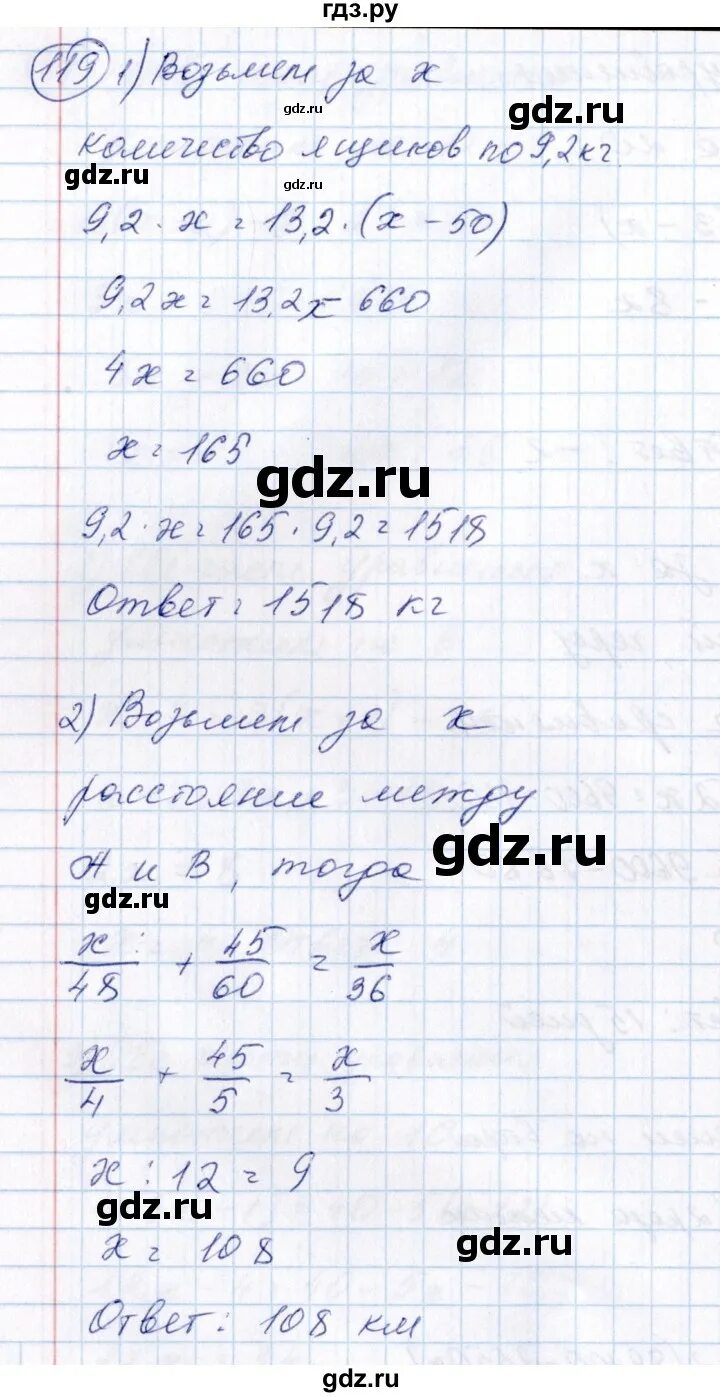 гдз.ру
119 1) Возьмем за x
gdz.ru
количество ящиков по 9,2 кг.
gdz.ru
gdz.ru
gdz.ru
9,2 · x = 13,2 · (x - 50)
9,2x = 13,2x - 660
4x = 660
x = 165
gdz.ru
9,2 · x = 165 · 9,2 = 1518
Ответ = 1518 кг
2) Возьмем за x
расстояние между
gdz.ru
А и В, тогда
gdz.ru
x/48 + 45/60 = x/36
x/4 + 45/5 = x/3
x : 12 = 9
gdz.ru
x = 108
gdz.ru
Ответ: 108 км
gdz.ru